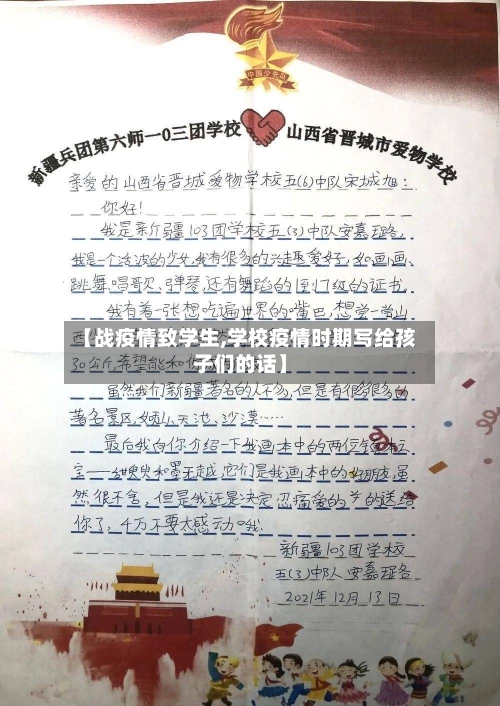 中国少年先锋队
新疆兵团第六师一0三团学校
山西省晋城市爱物学校
亲爱的山西省晋城爱物学校五(6)中队宋城旭:
你好!
我是新疆103团学校五(3)中队安嘉璐,
我是一个活波的少女,我有很多的兴趣爱好,如画画,
跳舞、唱歌、弹琴,还有舞蹈的
级的证书.
我有着一张想吃遍世界的嘴巴,想尝一尝山
【战疫情致学生,学校疫情时期写给孩
子们的话】
30公斤,希望能和你
虽然我们新疆著名的人不多,但是有很多很多的
著名景区,如
山、天池、沙漠……
最后我向你介绍一下我画本中的两位
宝——
和墨无越,它们是我画本中的好朋友,虽
然很不舍,但是我还是决定忍痛爱的
的送给
你了,千万不要太感动哦!
新疆103团学校
五(3)中队 安嘉璐
2021年12月13日